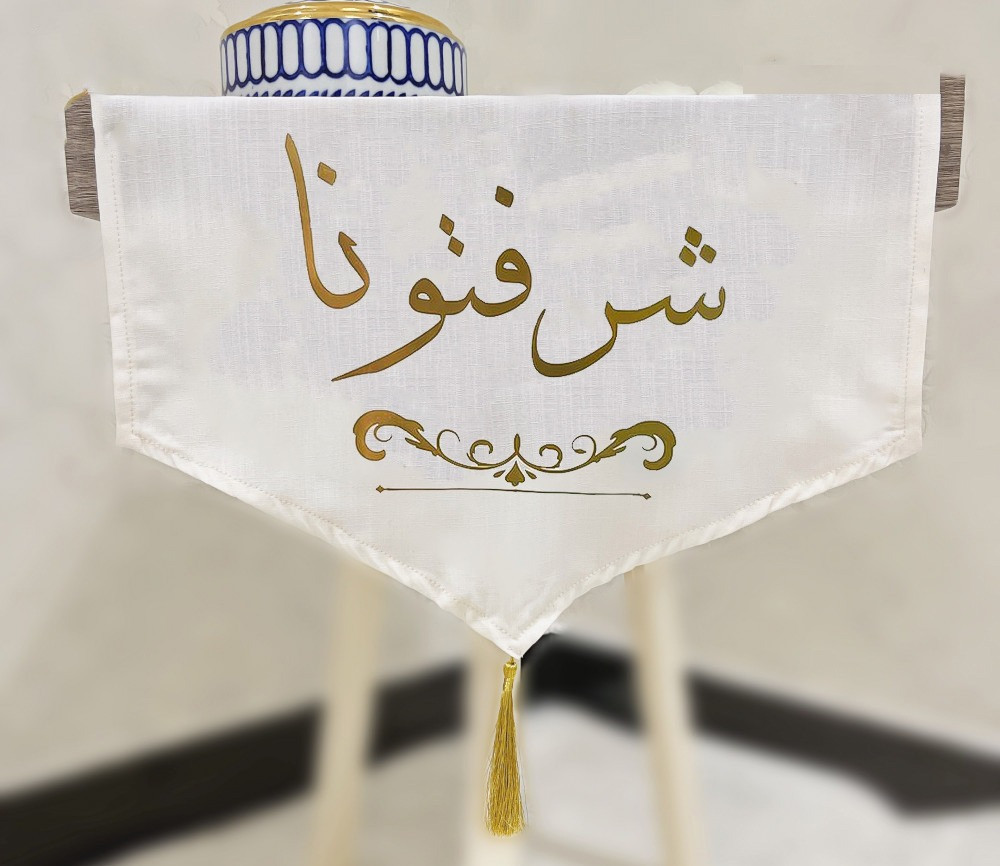 شرفتونا